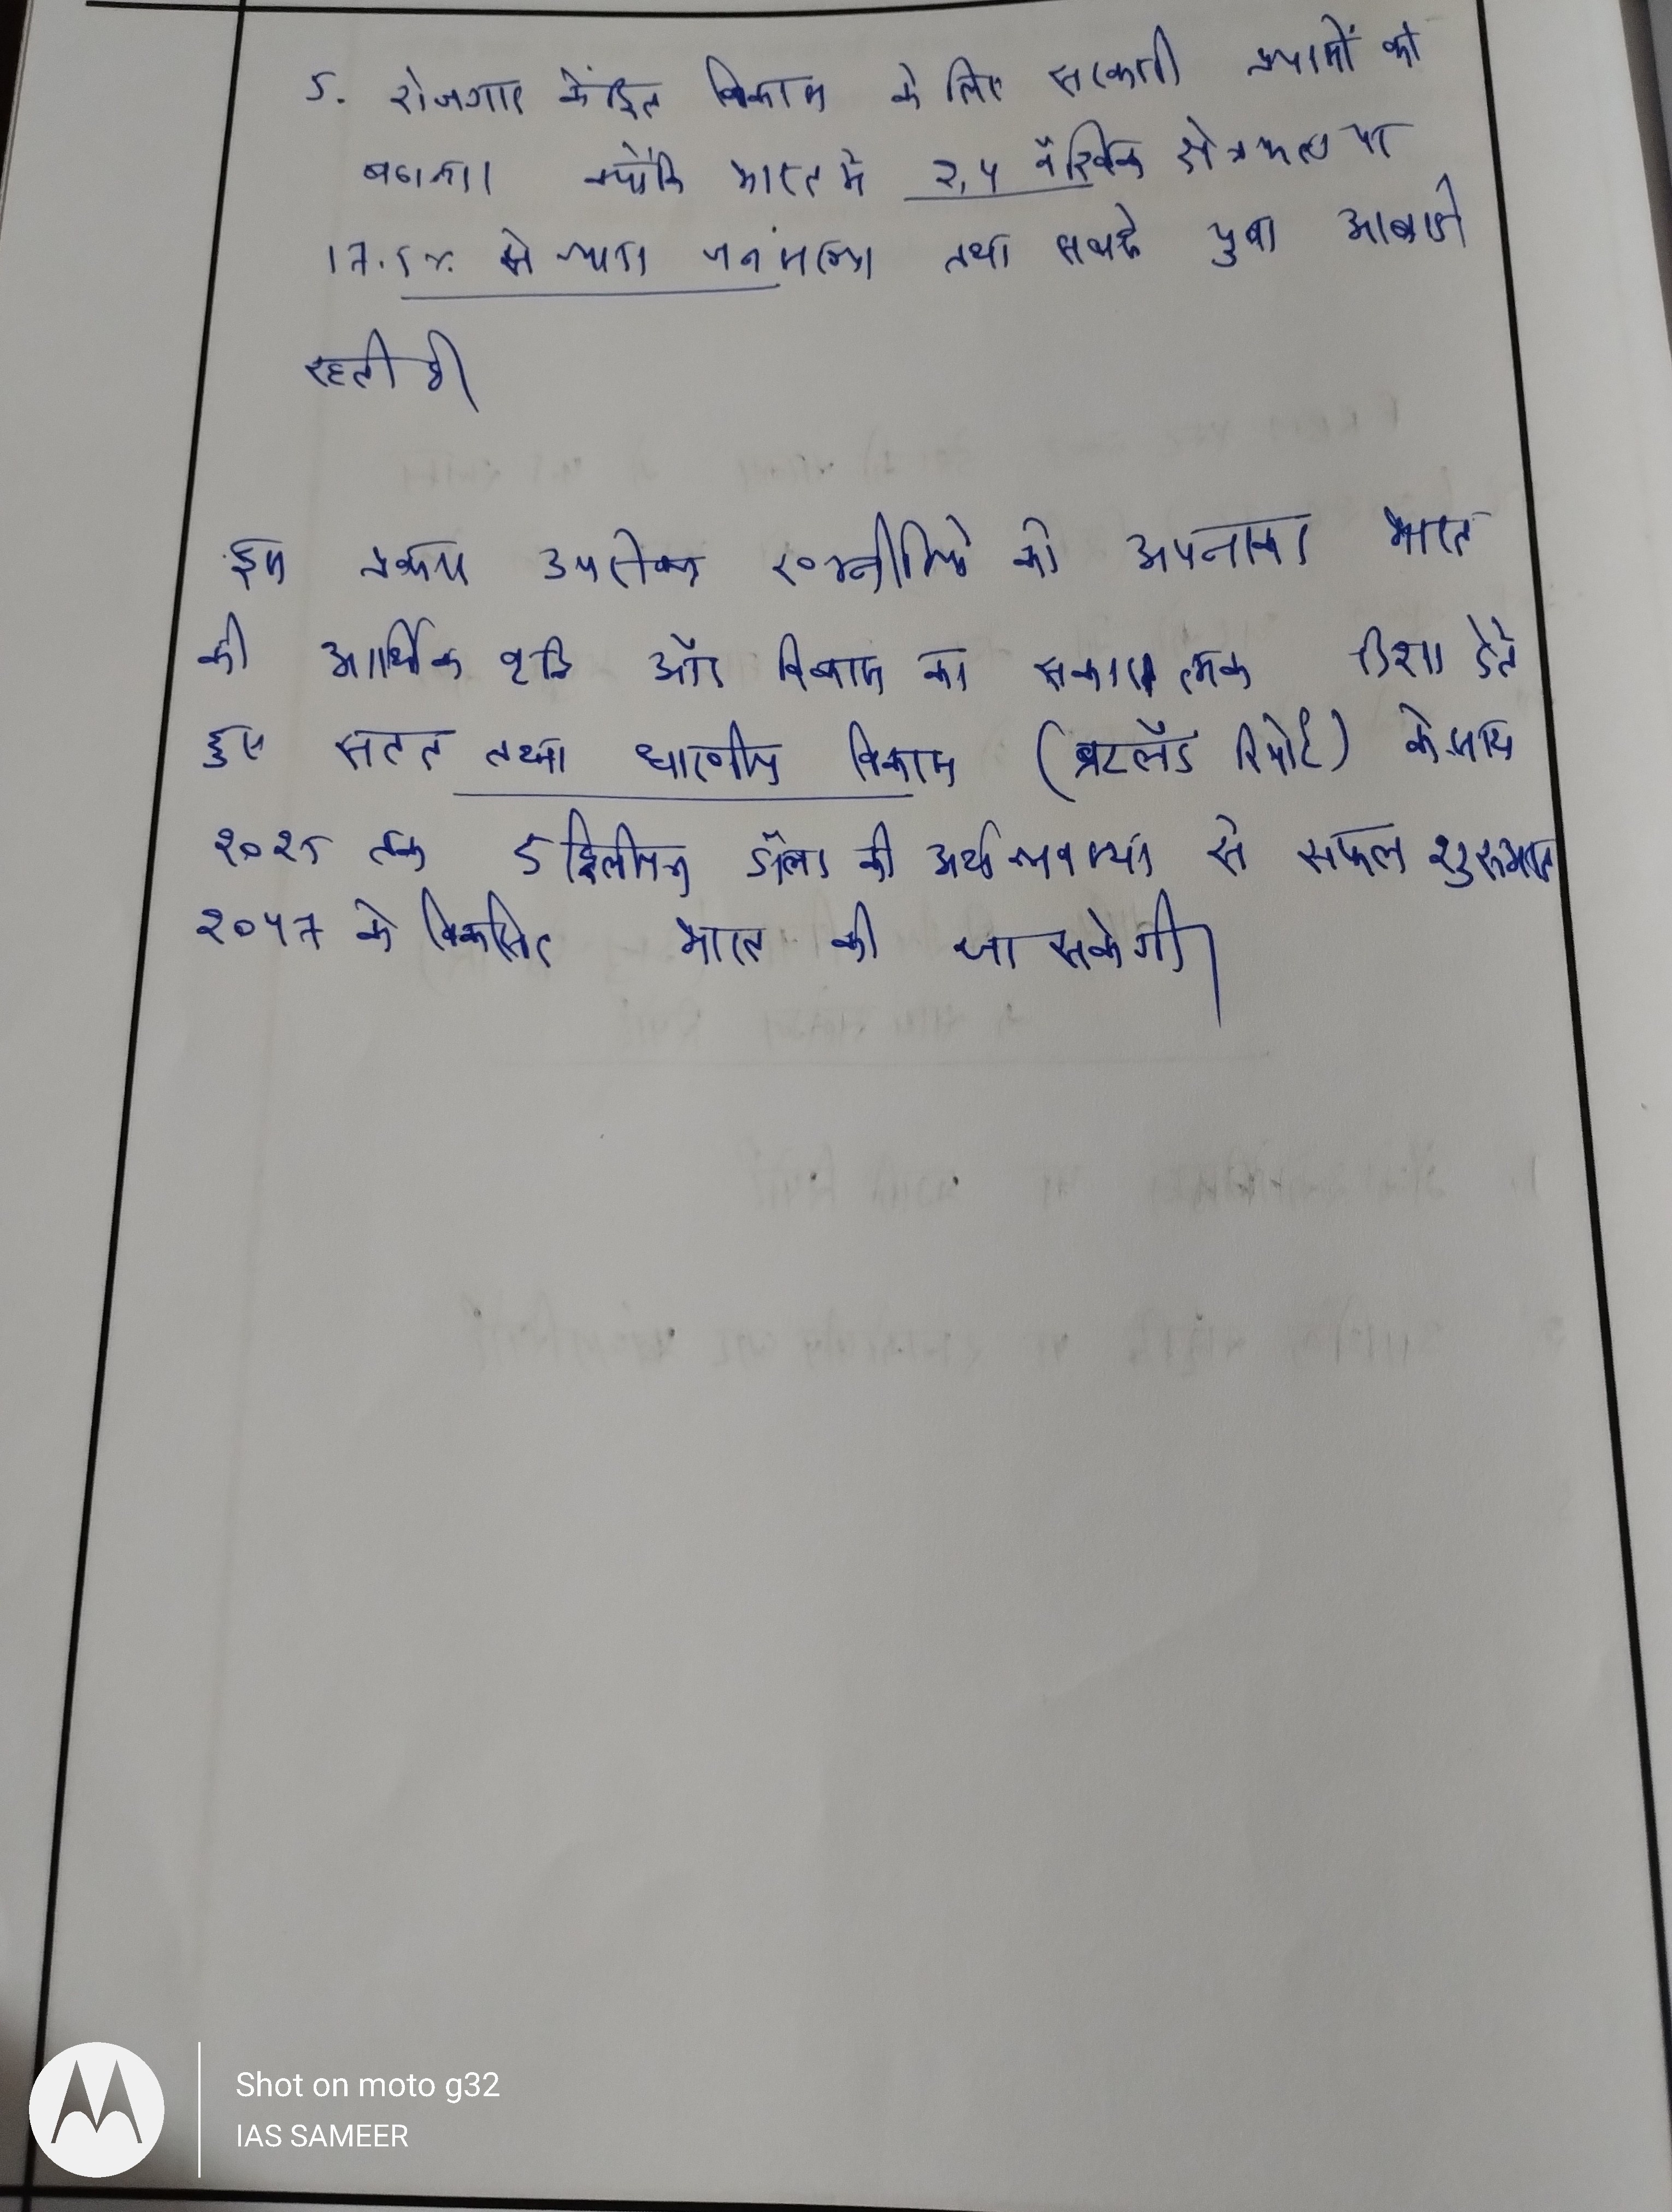 5. रोजगार केंद्रित विकास के लिए सरकारी प्रयासों को
बढ़ाना। क्योंकि भारत में २.4 वैश्विक क्षेत्रफल पर
17.5%. से ज्यादा जनसंख्या तथा सबसे युवा आबादी
रहती है।
इस प्रकार उपरोक्त रणनीतियों को अपनाकर भारत
की आर्थिक वृद्धि और विकास का सकारात्मक दिशा देते
हुए सतत तथा धारणीय विकास (ब्रटलैंड रिपोर्ट) के साथ
२०२5 तक 5 ट्रिलीयन डॉलर की अर्थव्यवस्था से सफल शुरुआत
२०५7 के विकसित भारत की जा सकेगी।
Shot on moto g32
IAS SAMEER